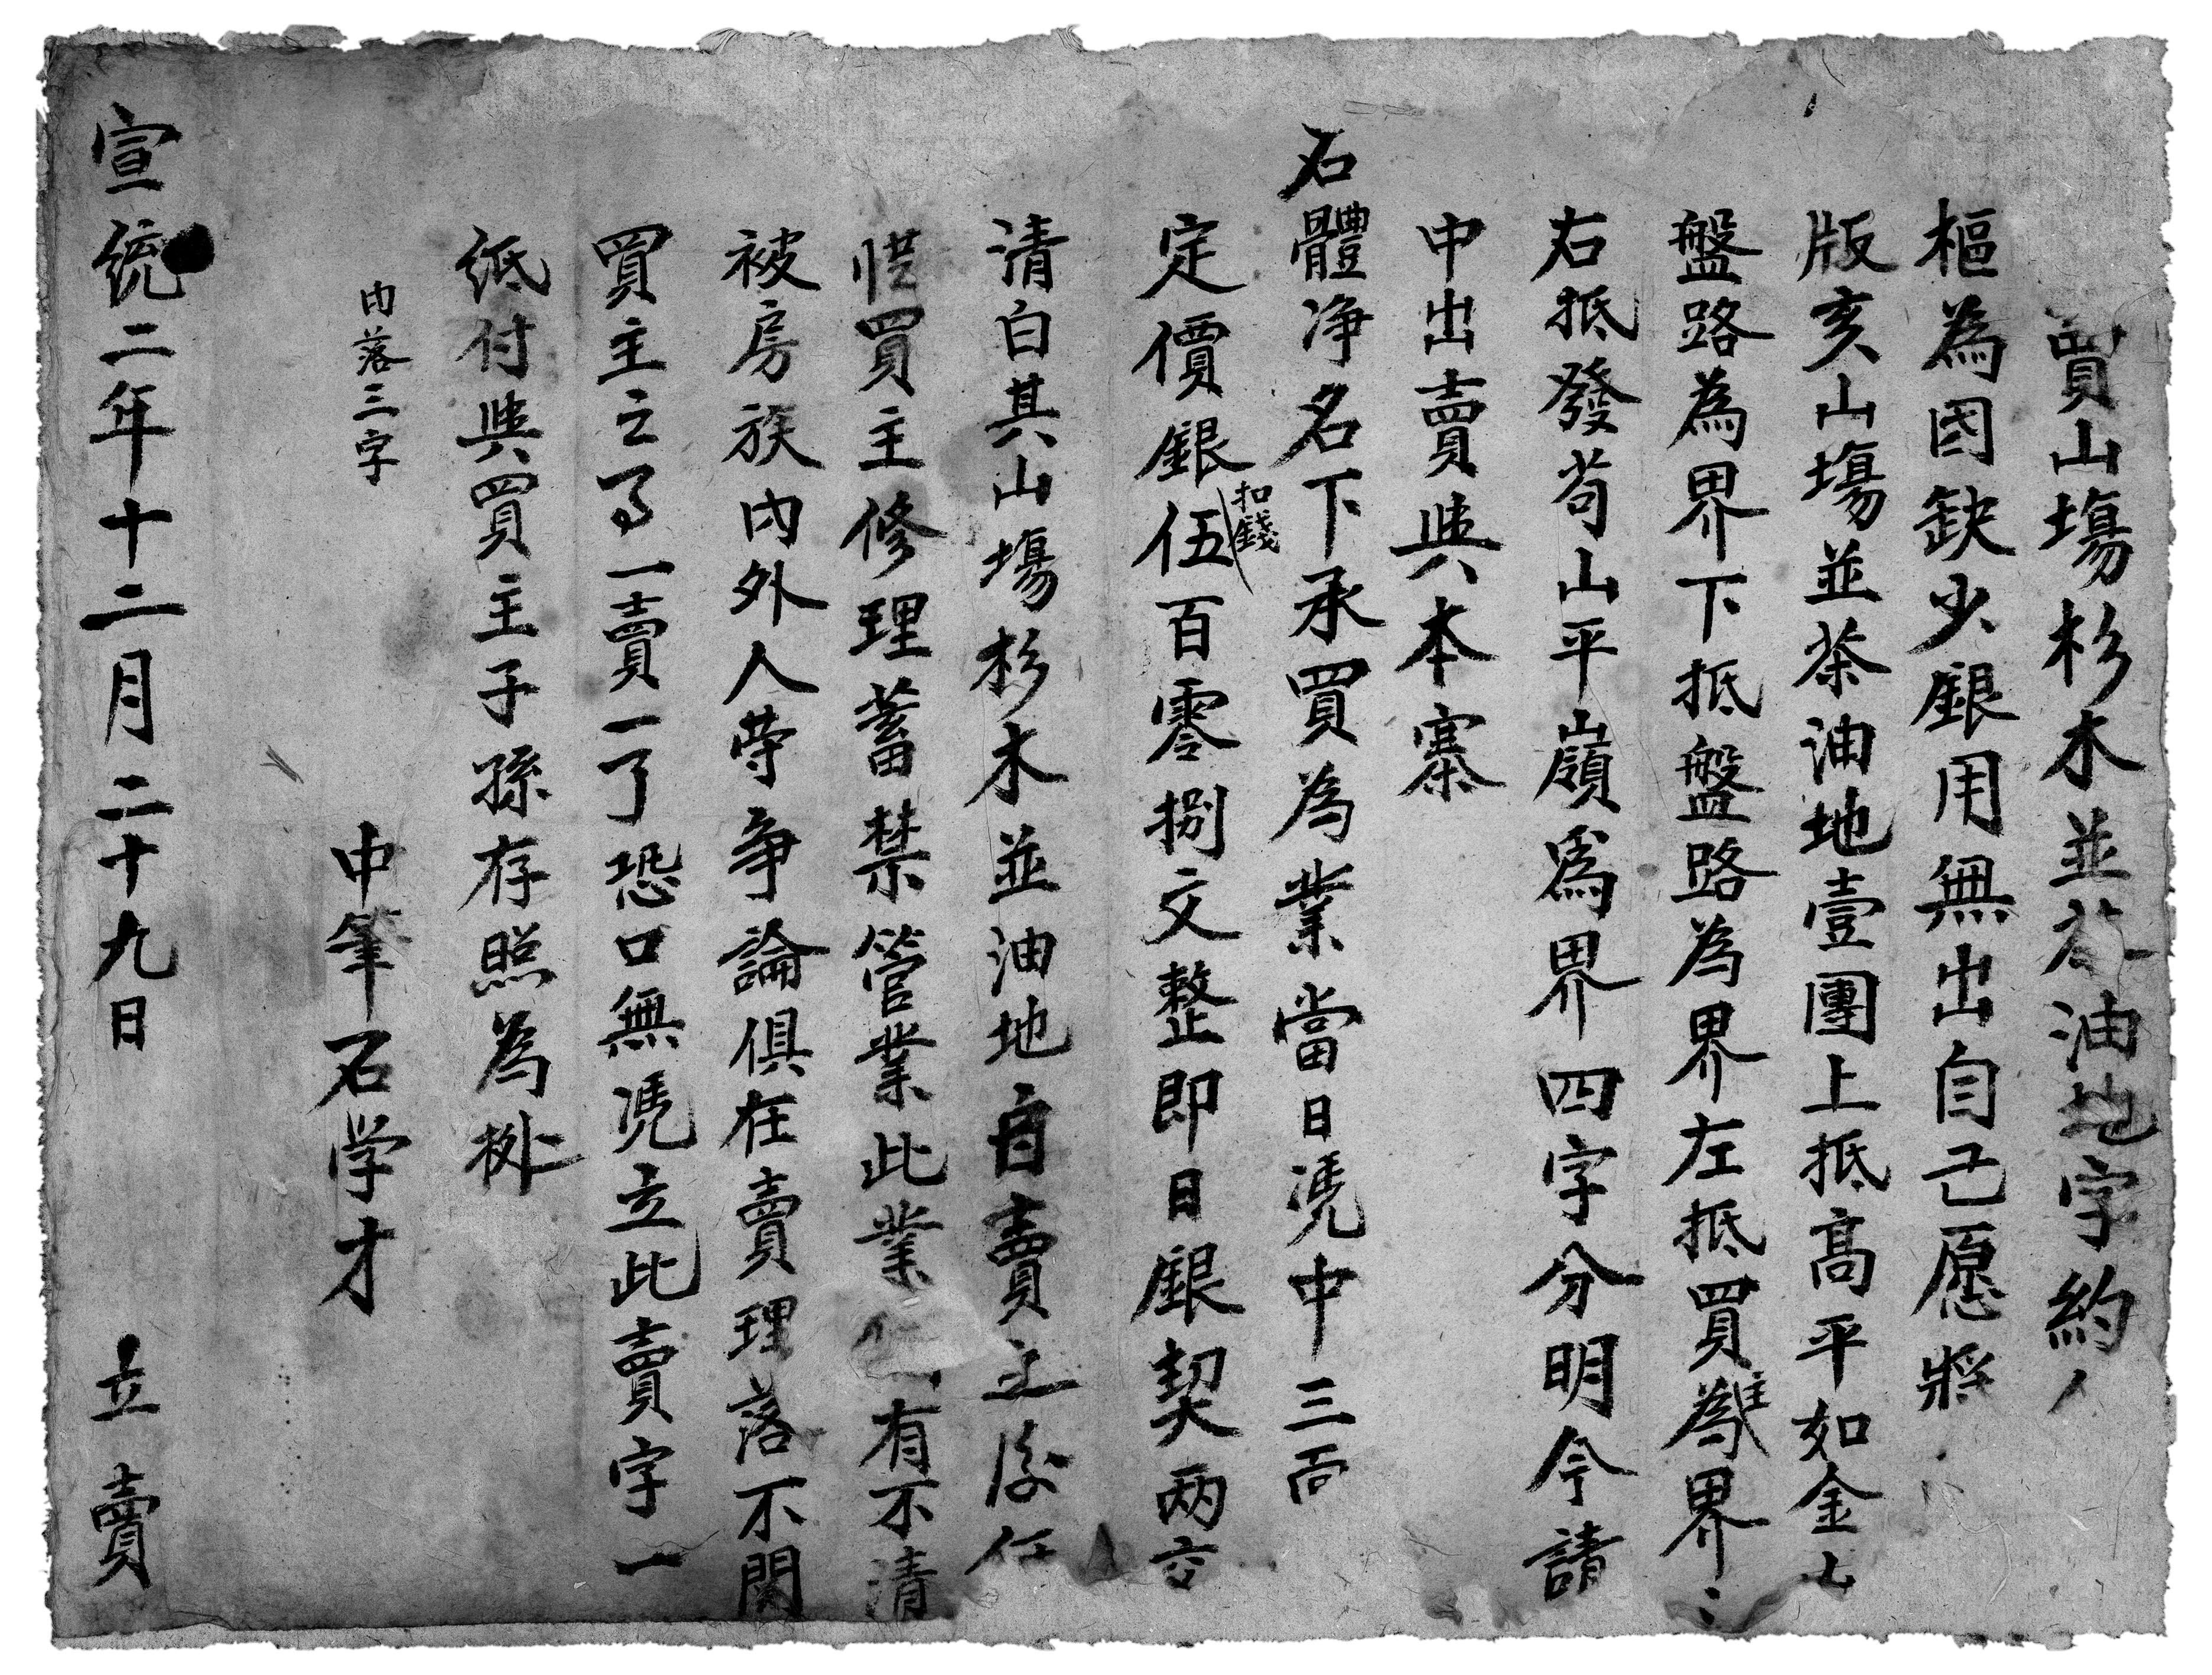 賣山塲杉木並茶油地字約人
樞為因缺少銀用無出自己愿將
版亥山塲並茶油地壹團上抵髙平如金山
盤路為界下抵盤路為界左抵買雞為界
右抵發苟山平嶺爲界四字分明今請
中出賣與本寨
石體净名下承買為業當日凴中三面
定價銀伍百零捌文整即日銀契两交
扣錢
清白其山塲杉木並油地自賣之後任
慿買主修理蓄禁管業此業 有不清
被房族内外人等争論俱在賣理落不関
買主之事一賣一了恐口無凴立此賣字一
纸付與買主子孫存照為㯲
内落三字
中筆石学才
宣統二年十二月二十九日 立賣